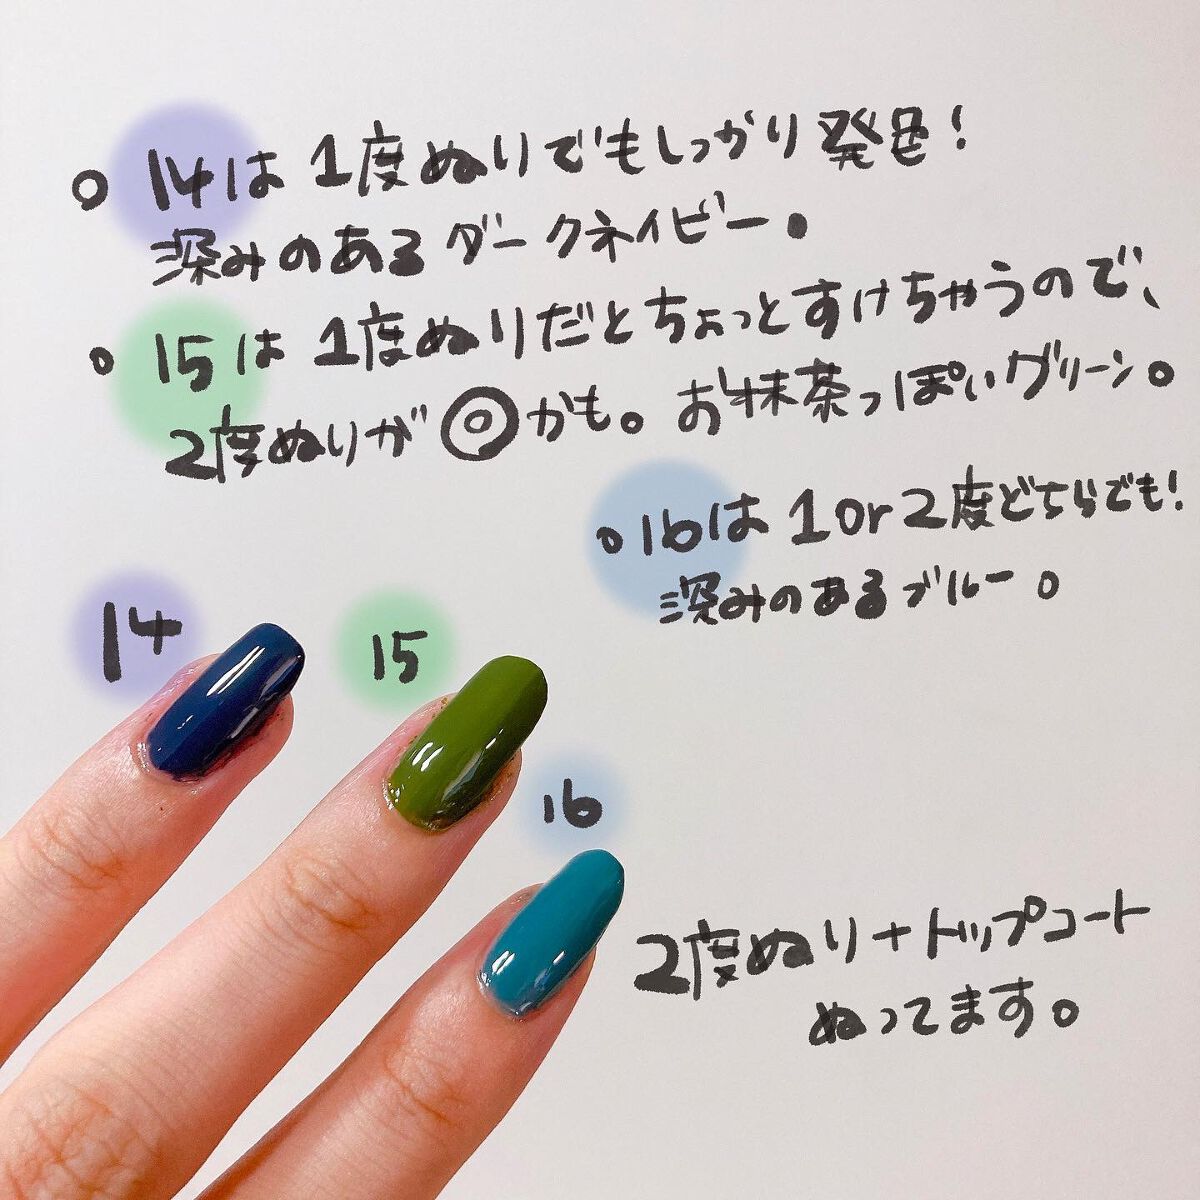 ○ 14は1度ぬりでもしっかり発色!
深みのあるダークネイビー。
○ 15は1度ぬりだとちょっとすけちゃうので、
2度ぬりが◎かも。お抹茶っぽいグリーン。
○16は1or2度どちらでも!
深みのあるブルー。
14
15
16
2度ぬり+トップコート
ぬってます。